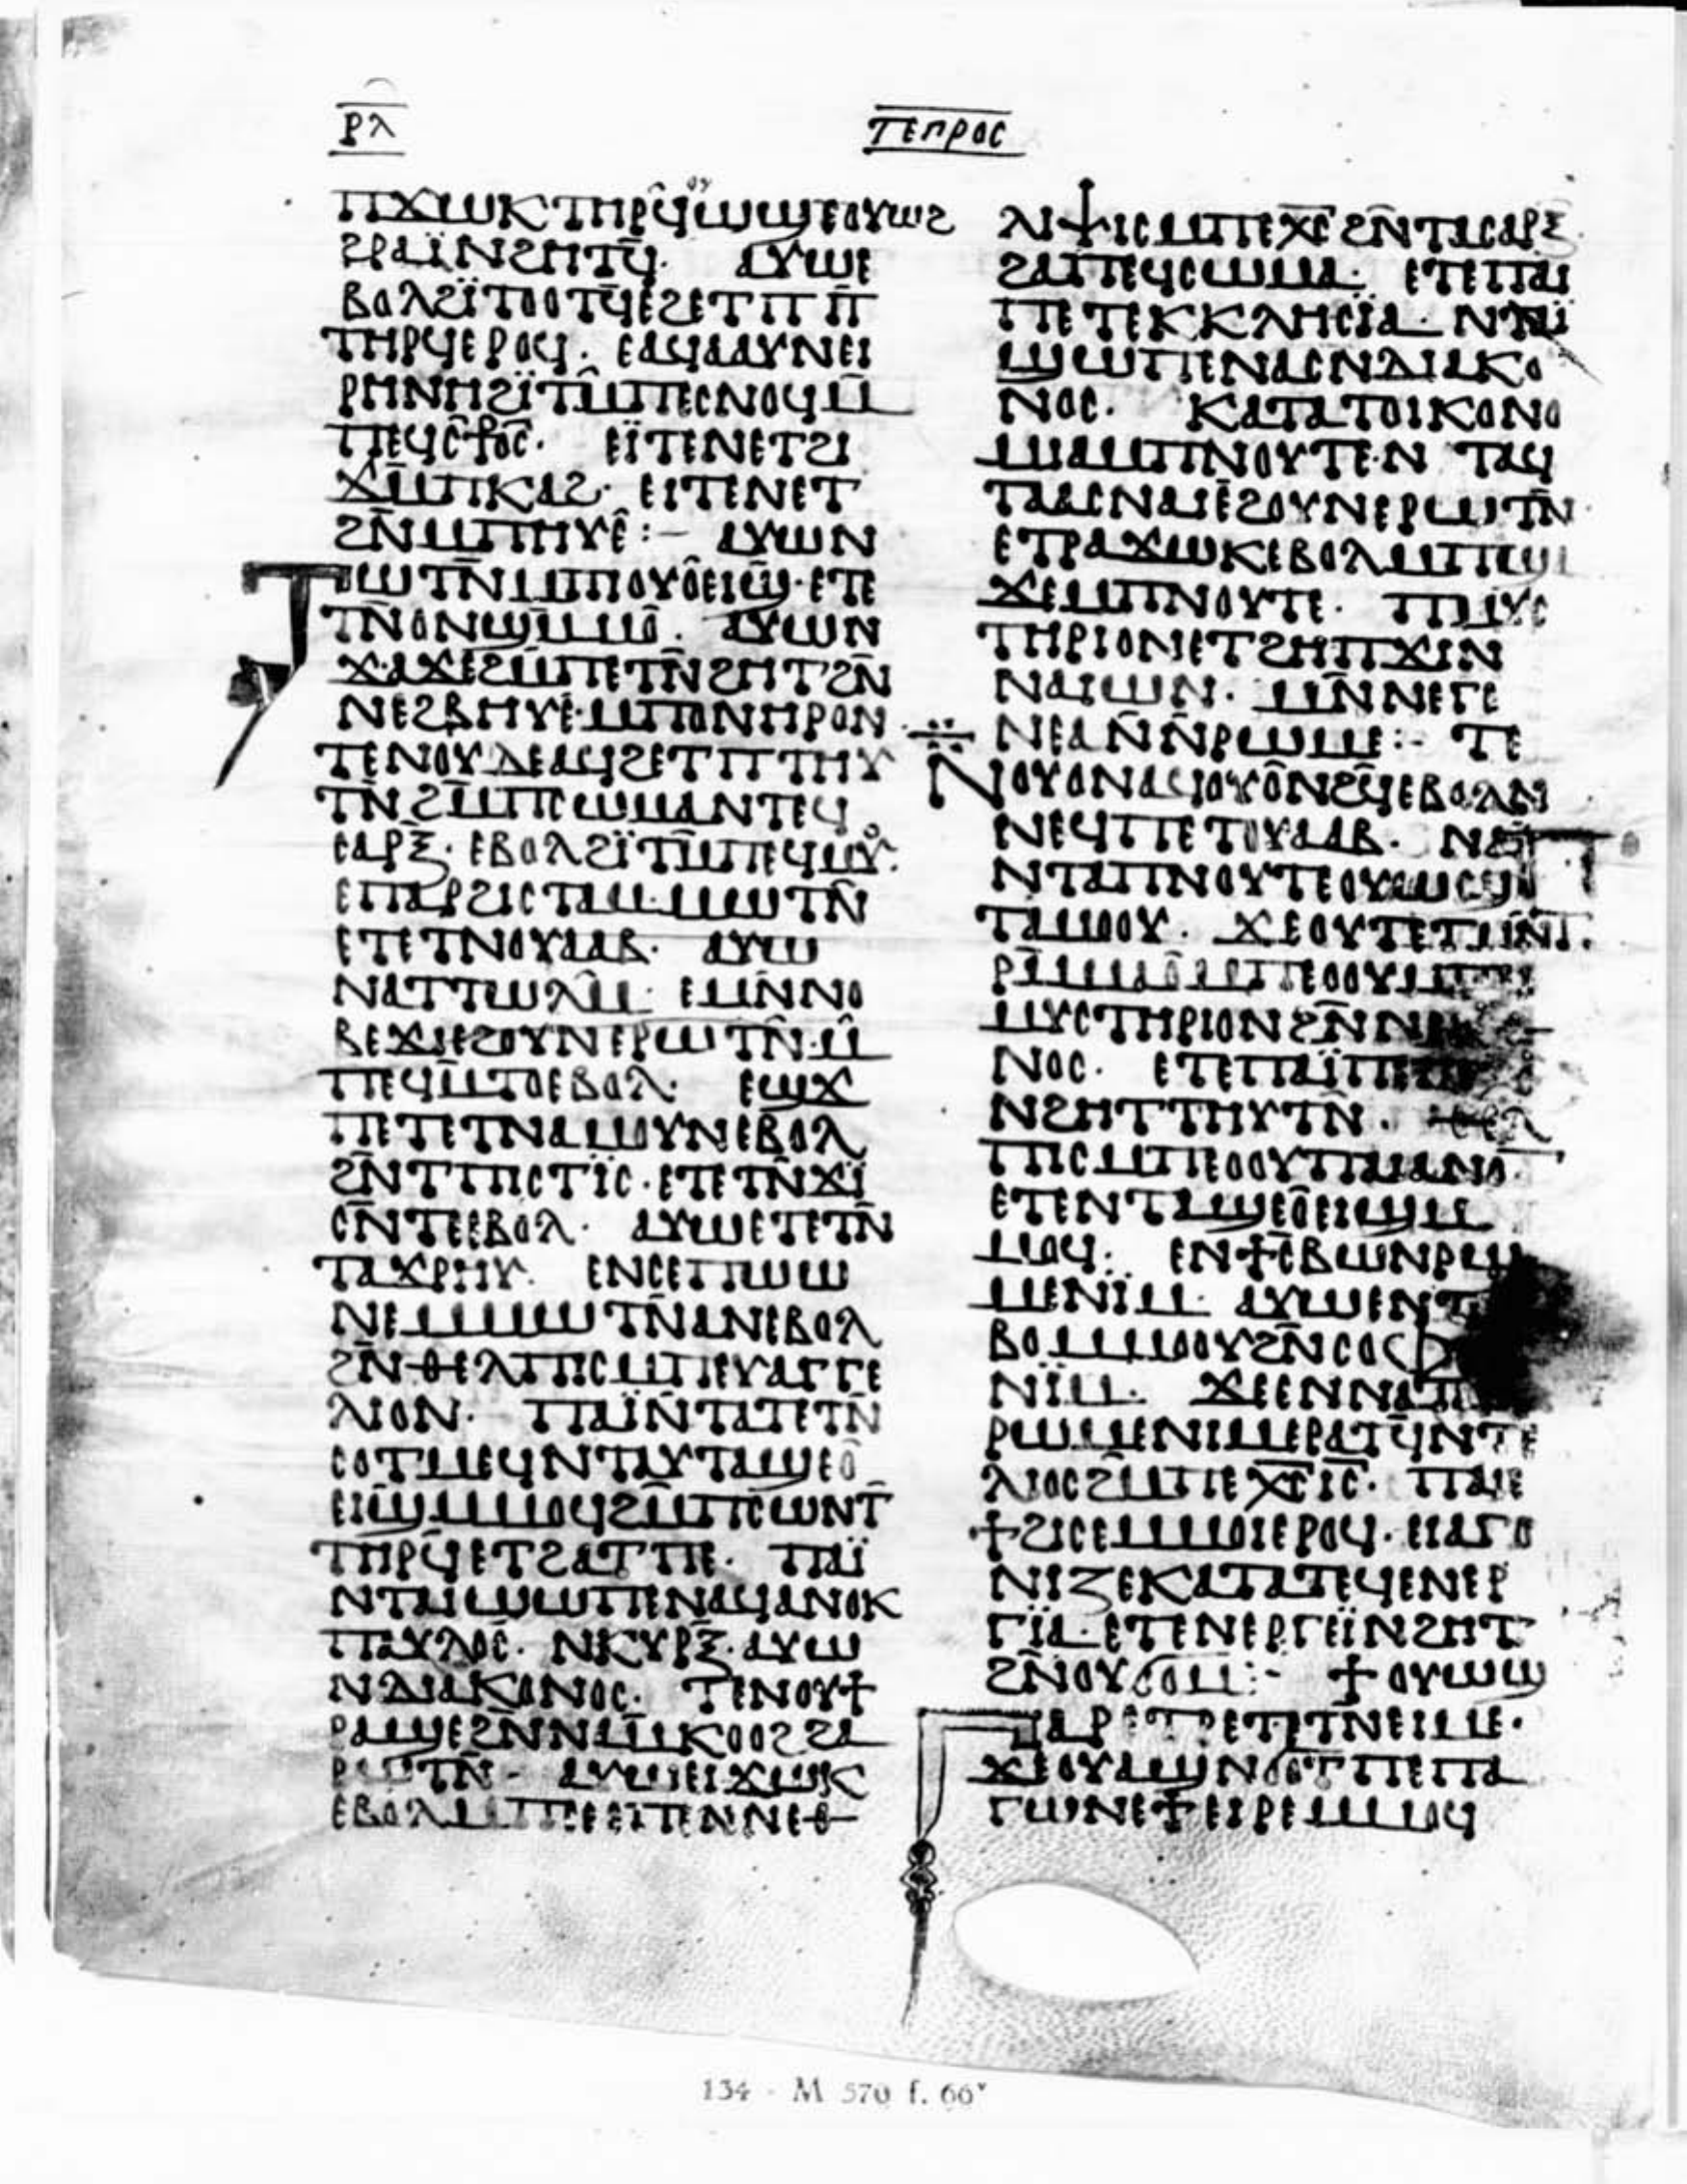 ⲣⲗ
ⲧⲉⲡⲣⲟⲥ
ⲡϫⲱⲕ ⲧⲏⲣϥ̂ ⲟⲩⲱϣ ⲉⲟⲩⲱϩ
ϩⲣⲁⲓ̈ ⲛϩⲏⲧϥ̄. ⲁⲩⲱ ⲉ
ⲃⲟⲗ ϩⲓ̈ⲧⲟⲟⲧϥ̄ ⲉϩⲉⲧⲡ ⲡ̄
ⲧⲏⲣϥ ⲉⲣⲟϥ. ⲉⲁϥⲁⲁⲩ ⲛⲉⲓ
ⲣⲏⲛⲏ ϩⲓ̈ⲧⲙ̄ ⲡⲉⲥⲛⲟϥ ⲙ̄
ⲡⲉϥⲥ̄ⳁⲟ̄ⲥ̄. ⲉⲓ̈ⲧⲉ ⲛⲉⲧϩⲓ
ϫⲙ̄ ⲡⲕⲁϩ. ⲉⲓⲧⲉ ⲛⲉⲧ
ϩⲛ̄ ⲙ̄ⲡⲏⲩⲉ̂:– ⲁⲩⲱ ⲛ
ⲧⲱⲧⲛ̄ ⲙ̄ⲡⲓⲟⲩⲟ̂ⲉⲓϣ̄. ⲉⲧⲉ
ⲧⲛ̄ⲟ ⲛϣⲙ̄ⲙⲟ̂. ⲁⲩⲱ ⲛ
ϫⲁϫⲉ ϩⲙ̄ ⲡⲉⲧⲛ̄ϩⲏⲧ ϩⲛ̄
ⲛⲉϩⲃⲏⲩⲉ. ⲙ̄ⲡⲟⲛⲏⲣⲟⲛ
ⲧⲉⲛⲟⲩ ⲇⲉ ⲁϥϩⲉⲧⲡ ⲧⲏⲩ
ⲧⲛ̄ ϩⲙ̄ ⲡⲥⲱⲙⲁ ⲛⲧⲉϥ
ⲥⲁⲣⲝ̄. ⲉⲃⲟⲗ ϩⲓ̈ⲧⲙ̄ ⲡⲉϥⲙⲟⲩ.
ⲉⲡⲁⲣϩⲓⲥⲧⲁ ⲙ̄ⲙⲱⲧⲛ̄
ⲉⲧⲉⲧⲛⲟⲩⲁⲁⲃ. ⲁⲩⲱ
ⲛⲁⲧⲧⲱⲗⲙ̄. ⲉⲙⲛ̄ ⲛⲟ
ⲃⲉ ϫⲓ ⲉϩⲟⲩⲛ ⲉⲣⲱⲧⲛ̄. ⲙ̄
ⲡⲉϥⲙ̄ⲧⲟ ⲉⲃⲟⲗ. ⲉϣϫ
ⲡⲉ ⲧⲉⲧⲛⲁⲙⲟⲩⲛ ⲉⲃⲟⲗ
ϩⲛ̄ ⲧⲡⲓⲥⲧⲓ̈ⲥ. ⲉⲧⲉⲧⲛ̄ϫⲓ̈
ⲥⲛ̄ⲧⲉ ⲉⲃⲟⲗ. ⲁⲩⲱ ⲉⲧⲉⲧⲛ̄
ⲧⲁϫⲣⲏⲩ. ⲉⲛⲥⲉⲡⲱⲱ
ⲛⲉ ⲙ̄ⲙⲱⲧⲛ̄ ⲁⲛ ⲉⲃⲟⲗ
ϩⲛ̄ ⲑⲉⲗⲡⲓⲥ ⲙ̄ⲡⲉⲩⲁⲅⲅⲉ
ⲗⲓⲟⲛ. ⲡⲁⲓ̈ ⲛ̄ⲧⲁⲧⲉⲧⲛ̄
ⲥⲟⲧⲙⲉϥ ⲛⲧⲁⲩⲧⲁϣⲉⲟ̂
ⲉⲓϣ̄ ⲙ̄ⲙⲟϥ ϩⲙ̄ ⲡⲥⲱⲛⲧ̄
ⲧⲏⲣϥ̄ ⲉⲧϩⲁ ⲧⲡⲉ. ⲡⲁⲓ̈
ⲛⲧⲁⲓϣⲱⲡⲉ ⲛⲁϥ ⲁⲛⲟⲕ
ⲡⲁⲩⲗⲟⲥ. ⲛⲕⲩⲣⲝ̄. ⲁⲩⲱ
ⲛⲇⲓⲁⲕⲟⲛⲟⲥ. ⲧⲉⲛⲟⲩ ϯ
ⲣⲁϣⲉ ϩⲛ̄ ⲛⲁⲙ̄ⲕⲟⲟϩ ϩⲁ
ⲣⲱⲧⲛ̄. ⲁⲩⲱ ⲉⲓϫⲱⲕ
ⲉⲃⲟⲗ ⲙ̄ⲡⲥⲉⲉⲡⲉ ⲛⲛⲉⲑ
ⲗⲓ⯁ⲓⲥ ⲙ̄ⲡⲉⲭ̄ⲥ̄ ϩⲛ̄ ⲧⲁⲥⲁⲣⲝ
ϩⲁ ⲡⲉϥⲥⲱⲙⲁ. ⲉⲧⲉ ⲡⲁⲓ
ⲡⲉ ⲧⲉⲕⲕⲗⲏⲥⲓ̈ⲁ. ⲛⲧⲁⲓ̈
ϣⲱⲡⲉ ⲛⲁⲥ ⲛⲇⲓⲁⲕⲟ
ⲛⲟⲥ. ⲕⲁⲧⲁ ⲧⲟⲓⲕⲟⲛⲟ
ⲙⲓⲁ ⲙ̄ⲡⲛⲟⲩⲧⲉ. ⲛⲧⲁϥ
ⲧⲁⲁⲥ ⲛⲁⲓ ⲉϩⲟⲩⲛ ⲉⲣⲱⲧⲛ̄
ⲉⲧⲣⲁϫⲱⲕ ⲉⲃⲟⲗ ⲙ̄ⲡϣⲁ
ϫⲉ ⲙ̄ⲡⲛⲟⲩⲧⲉ. ⲡⲙⲩⲥ
ⲧⲏⲣⲓⲟⲛ ⲉⲧϩⲏⲡ ϫⲓⲛ
ⲛⲁⲓⲱⲛ. ⲙⲛ̄ ⲛⲉⲅⲉ
ⲛⲉⲁ ⲛ̄ⲛ̄ⲣⲱⲙⲉ:– ⲧⲉ
ⲛⲟⲩ ⲟⲛ ⲁϥⲟⲩⲟ̂ⲛϩϥ̄ ⲉⲃⲟⲗ ⲛ
ⲛⲉϥⲡⲉⲧⲟⲩⲁⲁⲃ. ⲛⲁⲓ̈
ⲛⲧⲁⲡⲛⲟⲩⲧⲉ ⲟⲩⲱϣ
ⲧⲁⲙⲟⲟⲩ. ϫⲉ ⲟⲩ ⲧⲉ ⲧⲙⲛ̄ⲧ.
ⲣⲙ̄ⲙⲁⲟ̂ ⲙ̄ⲡⲉⲟⲟⲩ ⲙ̄ⲡⲉⲓ̈
ⲙⲩⲥⲧⲏⲣⲓⲟⲛ ϩⲛ̄ ⲛϩⲉⲑ
ⲛⲟⲥ. ⲉⲧⲉ ⲡⲁⲓ̈ ⲡⲉ ⲡⲉⲭ̄ⲥ̄
ⲛϩⲏⲧ ⲧⲏⲩⲧⲛ̄. ⲑⲉⲗ
ⲡⲓⲥ ⲙ̄ⲡⲉⲟⲟⲩ ⲡⲁⲓ ⲁⲛⲟⲛ
ⲉⲧⲉⲛⲧⲁϣⲉⲟ̂ⲉⲓϣ ⲙ̄
ⲙⲟϥ. ⲉⲛϯⲥⲃⲱ ⲛⲣⲱ
ⲙⲉ ⲛⲓⲙ. ⲁⲩⲱ ⲉⲛⲧⲥⲁ
ⲃⲟ ⲙ̄ⲙⲟⲟⲩ ϩⲛ̄ ⲥⲟⲫⲓⲁ
ⲛⲓ̈ⲙ. ϫⲉ ⲉⲛⲛⲁⲡⲁ
ⲣⲱⲙⲉ ⲛⲓⲙ ⲉⲣⲁⲧϥ̄ ⲛⲧⲉ
ⲗⲓⲟⲥ ϩⲙ̄ ⲡⲉⲭ̄ⲥ̄ ⲓ̄ⲥ̄. ⲡⲁⲓ ⲉ
ϯϩⲓⲥⲉ ⲙ̄ⲙⲟⲓ ⲉⲣⲟϥ. ⲉⲓⲁⲅⲟ
ⲛⲓⲍⲉ ⲕⲁⲧⲁ ⲧⲉϥⲉⲛⲉⲣ
ⲅⲓ̈ⲁ. ⲉⲧⲉⲛⲉⲣⲅⲉⲓ̈ ⲛϩⲏⲧ
ϩⲛ̄ ⲟⲩϭⲟⲙ:– ϯⲟⲩⲱϣ
ⲅⲁⲣ ⲉⲧⲣⲉⲧⲉⲧⲛⲉⲓⲙⲉ.
ϫⲉ ⲟⲩⲁϣ ⲛϭⲟⲧ ⲡⲉ ⲡⲁ
ⲅⲱⲛ ⲉϯⲉⲓⲣⲉ ⲙ̄ⲙⲟϥ
134 - M 570 f. 66ᵛ